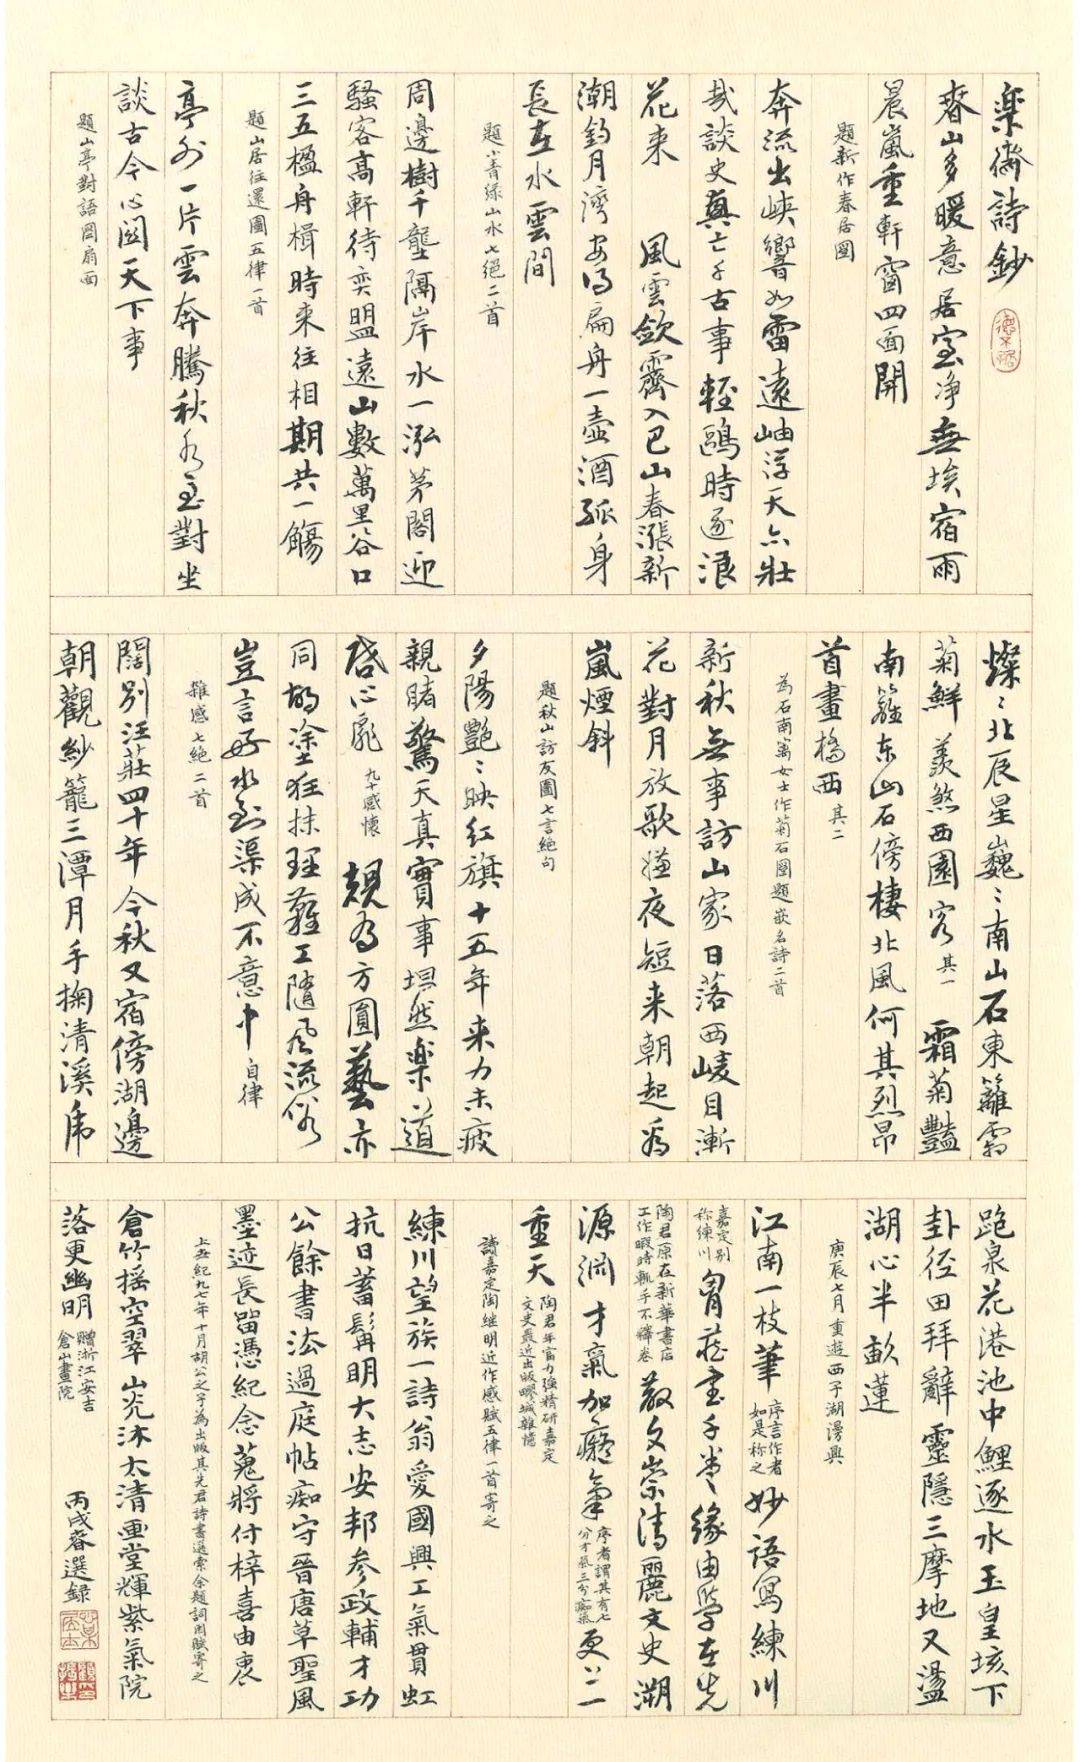 樂儕詩鈔
春山多暖意居室净無埃宿雨
晨嵐重軒窗四面開
題新作春居圖
奔流出峽響如雷遠岫浮天亦壯
哉談史真亡千古事輕鷗時逐浪
花來 風雲歛霽入巴山春漲新
潮釣月灣安得扁舟一壺酒孤身
長在水雲間
題小青緑山水七絕二首
周邊樹千壟隔岸水一泓茅閣迎
騷客高軒待奕盟遠山數萬里谷口
三五楹舟楫時來往相期共一觴
題山居往還圖五律一首
亭外一片雲奔騰秋水至對坐
談古今心図天下事
題山亭對語圖扇面
燦〻北辰星巍〻南山石東籬霜
菊鮮羨煞西園客 其一 霜菊豔
南籬东山石傍棲北風何其烈昂
首畫橋西 其二
為石南寓女士作菊石圖題嵌名詩二首
新秋無事訪山家日落西崚月漸
花對月放歌嫌夜短来朝起為
嵐煙斜
題秋山訪友圖七言絕句
夕陽艷〻映红旗十五年来力未疲
親睹驚天真實事坦然樂道
啓心扉 九十感懷 規為方圓藝亦
同胡塗狂抹理難工隨風流俗
豈言好水到渠成不意中 自律
雜感七絕二首
闊别汪莊四十年今秋又宿傍湖邊
朝觀紗籠三潭月手掬清溪虎
跑泉花港池中鯉逐水玉皇垓下
卦径田拜辭靈隱三摩地又盪
湖心半畝蓮
庚辰七月重遊西子湖漫興
江南一枝筆 序言作者如是称之 妙語寫練川
嘉定别称練川 胷藏書千卷緣由學在先
陶君原在新華書店工作暇時輒手不釋卷 散文崇清麗文史溯
源淵才氣加癡氣 序者謂其有七分才氣三分痴氣 更上一
重天 陶君年富力強精研嘉定文史最近出版疁城雜憶
讀嘉定陶继明近作感賦五律一首寄之
練川望族一詩翁愛國興工氣貫虹
抗日蓄髯明大志安邦參政輔才功
公餘書法過庭帖痴守晉唐草聖風
墨迹長留憑紀念蒐將付梓喜由衷
上世紀九七年十月胡公之子為出版其先君詩書選索余題詞因賦寄之
倉竹摇空翠山光沐太清画堂輝紫氣院
落更幽明 贈浙江安吉倉山畫院 丙戌春選録